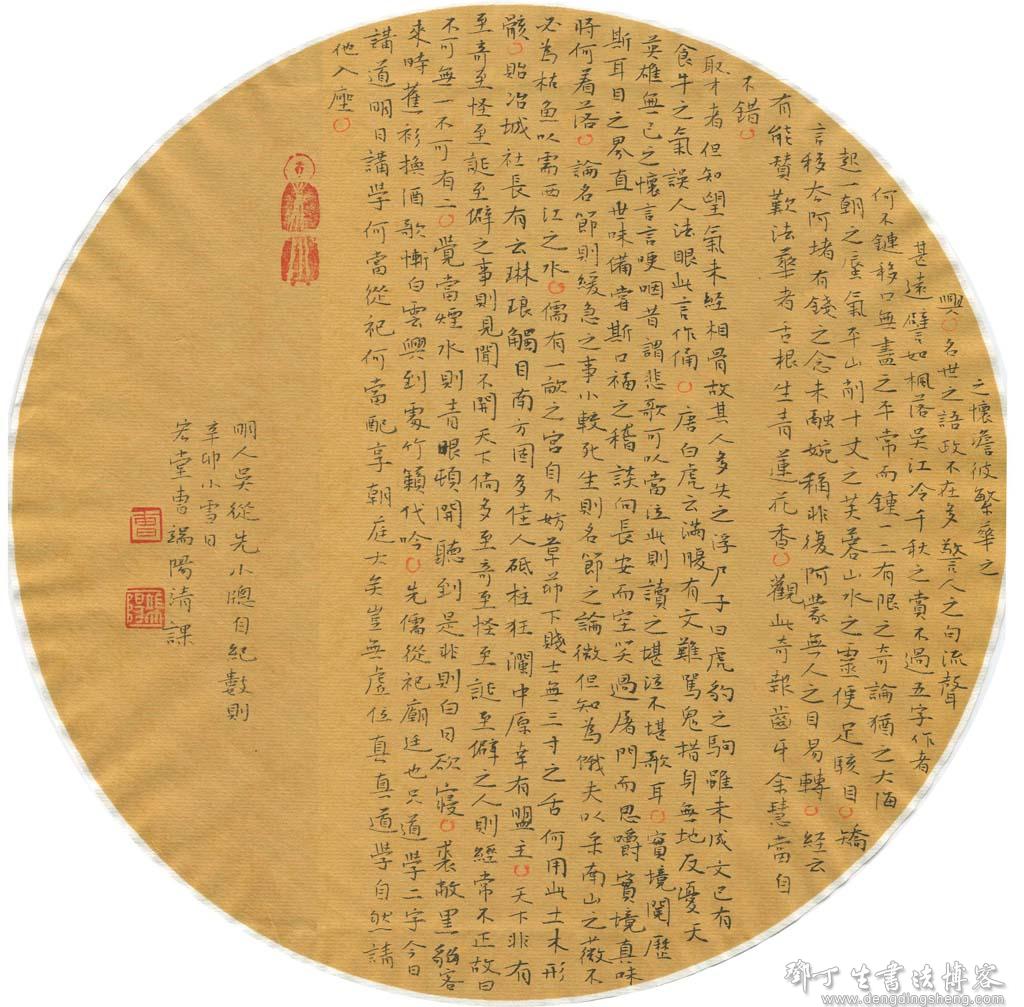 之懷澹彼繁華之
興名世之語政不在多驚人之句流聲
甚遠譬如楓落吳江冷千秋之賞不過五字作者
何不鏈移口無盡之平常而鍾一二有限之奇論猶之大海
起一朝之蜃氣平山削十丈之芙蓉山水之靈便足駭目矯
言移冬阿堵有錢之念未融婉稱非復阿蒙無人之目易轉經云
有能贊歎法華者舌根生青蓮花香觀此奇報齒牙余慧當自
不錯
取才者但知望氣未經相骨故其人多失之浮尸子曰虎豹之駒雖未成文已有
食牛之氣誤人法眼此言作俑唐白虎云滿腹有文難罵鬼措身無地反憂天
英雄無已之懷言言哽咽昔謂悲歌可以當泣此則讀之堪泣不堪歌耳實境閱歷
斯耳目之界直世味備嘗斯口福之稽談向長安而空笑過屠門而思嚼實境真味
將何着落論名節則緩急之事小較死生則名節之論微但知為餓夫以采南山之薇不
必為枯魚以需西江之水儒有一畝之宮自不妨草茆下賤士無三寸之舌何用此土木形
骸貽冶城社長有云琳琅觸目南方固多佳人砥柱狂瀾中原幸有盟主天下非有
至奇至怪至誕至僻之事則見聞不開天下倘多至奇至怪至誕至僻之人則經常不正故曰
不可無一不可有二覺當煙水則青眼頓開聽到是非則白日欲寢裘敝黑貂客
來時舊衫換酒歌慚白雲興到處竹籟代吟先儒從祀廟廷也只道學二字今日
講道明日講學何當從祀何當配享朝廷大矣豈無虛位真真道學自然請
他入座
明人吳從先小窗自紀數則
辛卯小雪日
宏堂曹端陽清課
曹
鄧丁生書法博客
www.dengdingsheng.com